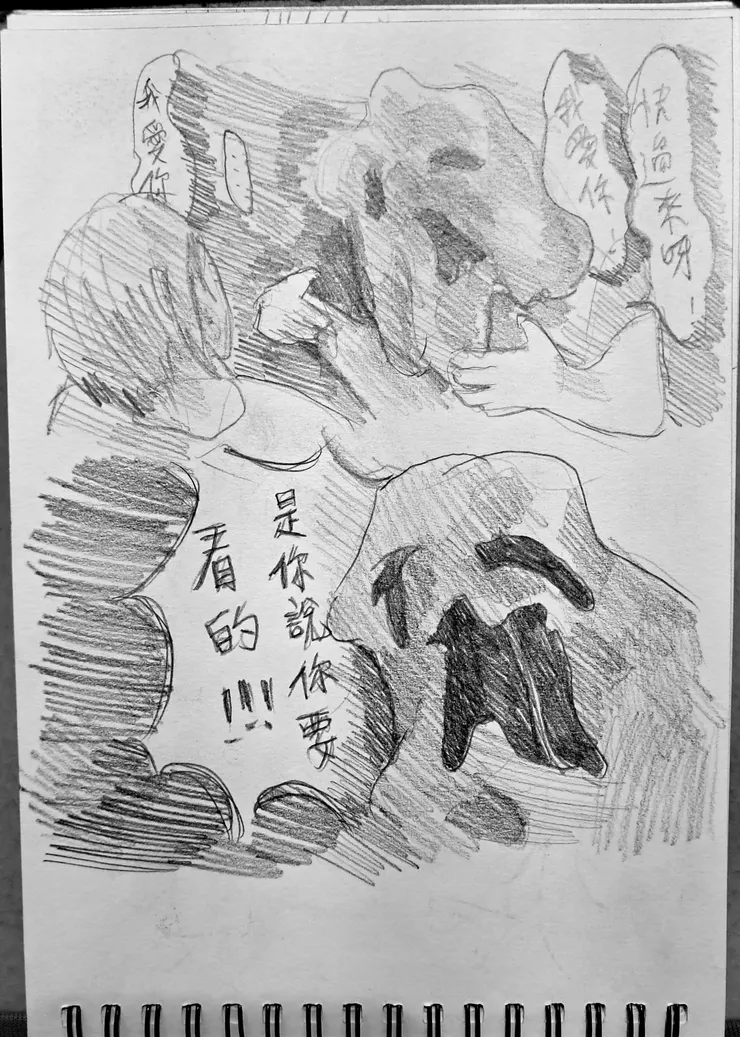 快過來呀!
我愛你
我愛你
是你說你要
看的!!!